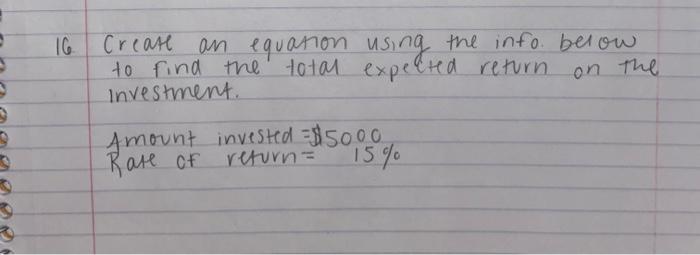 16 Create an equation using the info. below
to find the total expected return on the
investment.
Amount invested = $5000
Rate of return = 15%